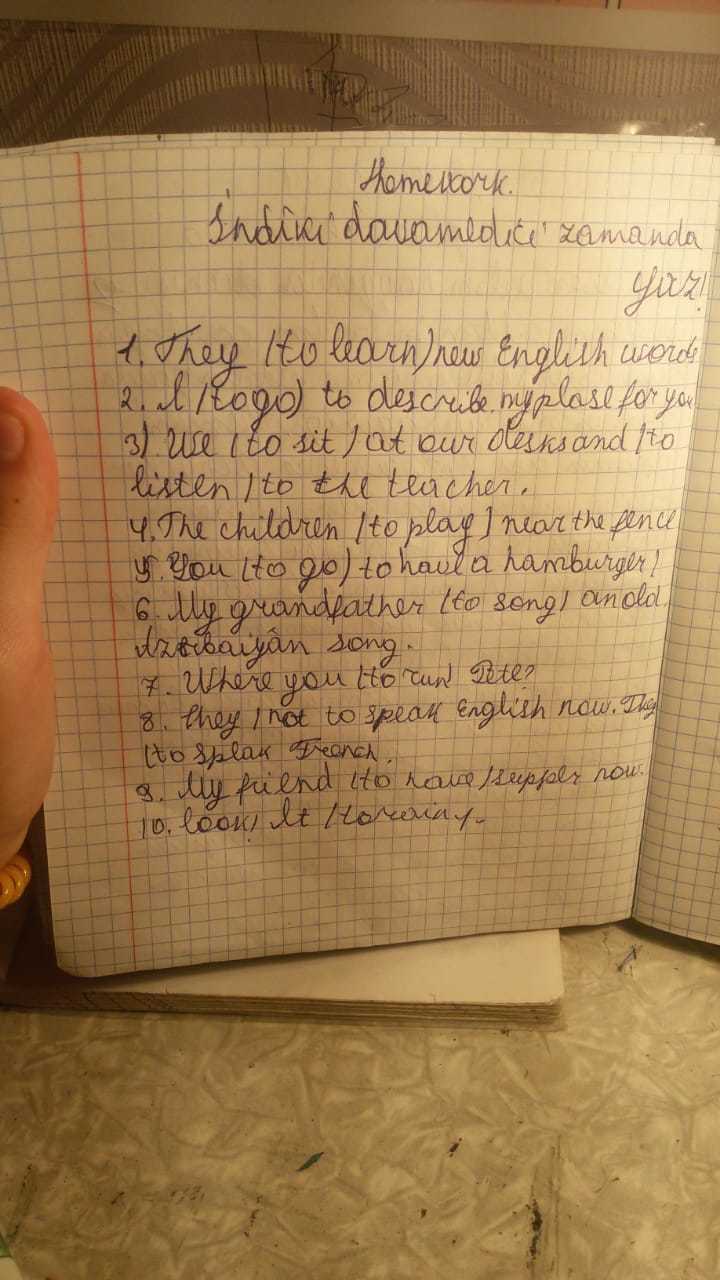 Homework.
İndiki davamedici zamanda
yaz!
1. They (to learn) new English words
2. I (to go) to describe my plase for you
3) We (to sit) at our desks and (to
listen) to the teacher.
4. The children (to play) near the fence
5. You (to go) to have a hamburger!
6. My grandfather (to song) an old
Azerbaiyan song.
7. Where you (to run Pete?
8. They (not to speak English now. They
(to speak French.
9. My friend (to have) supper now.
10. look! It (to rain).